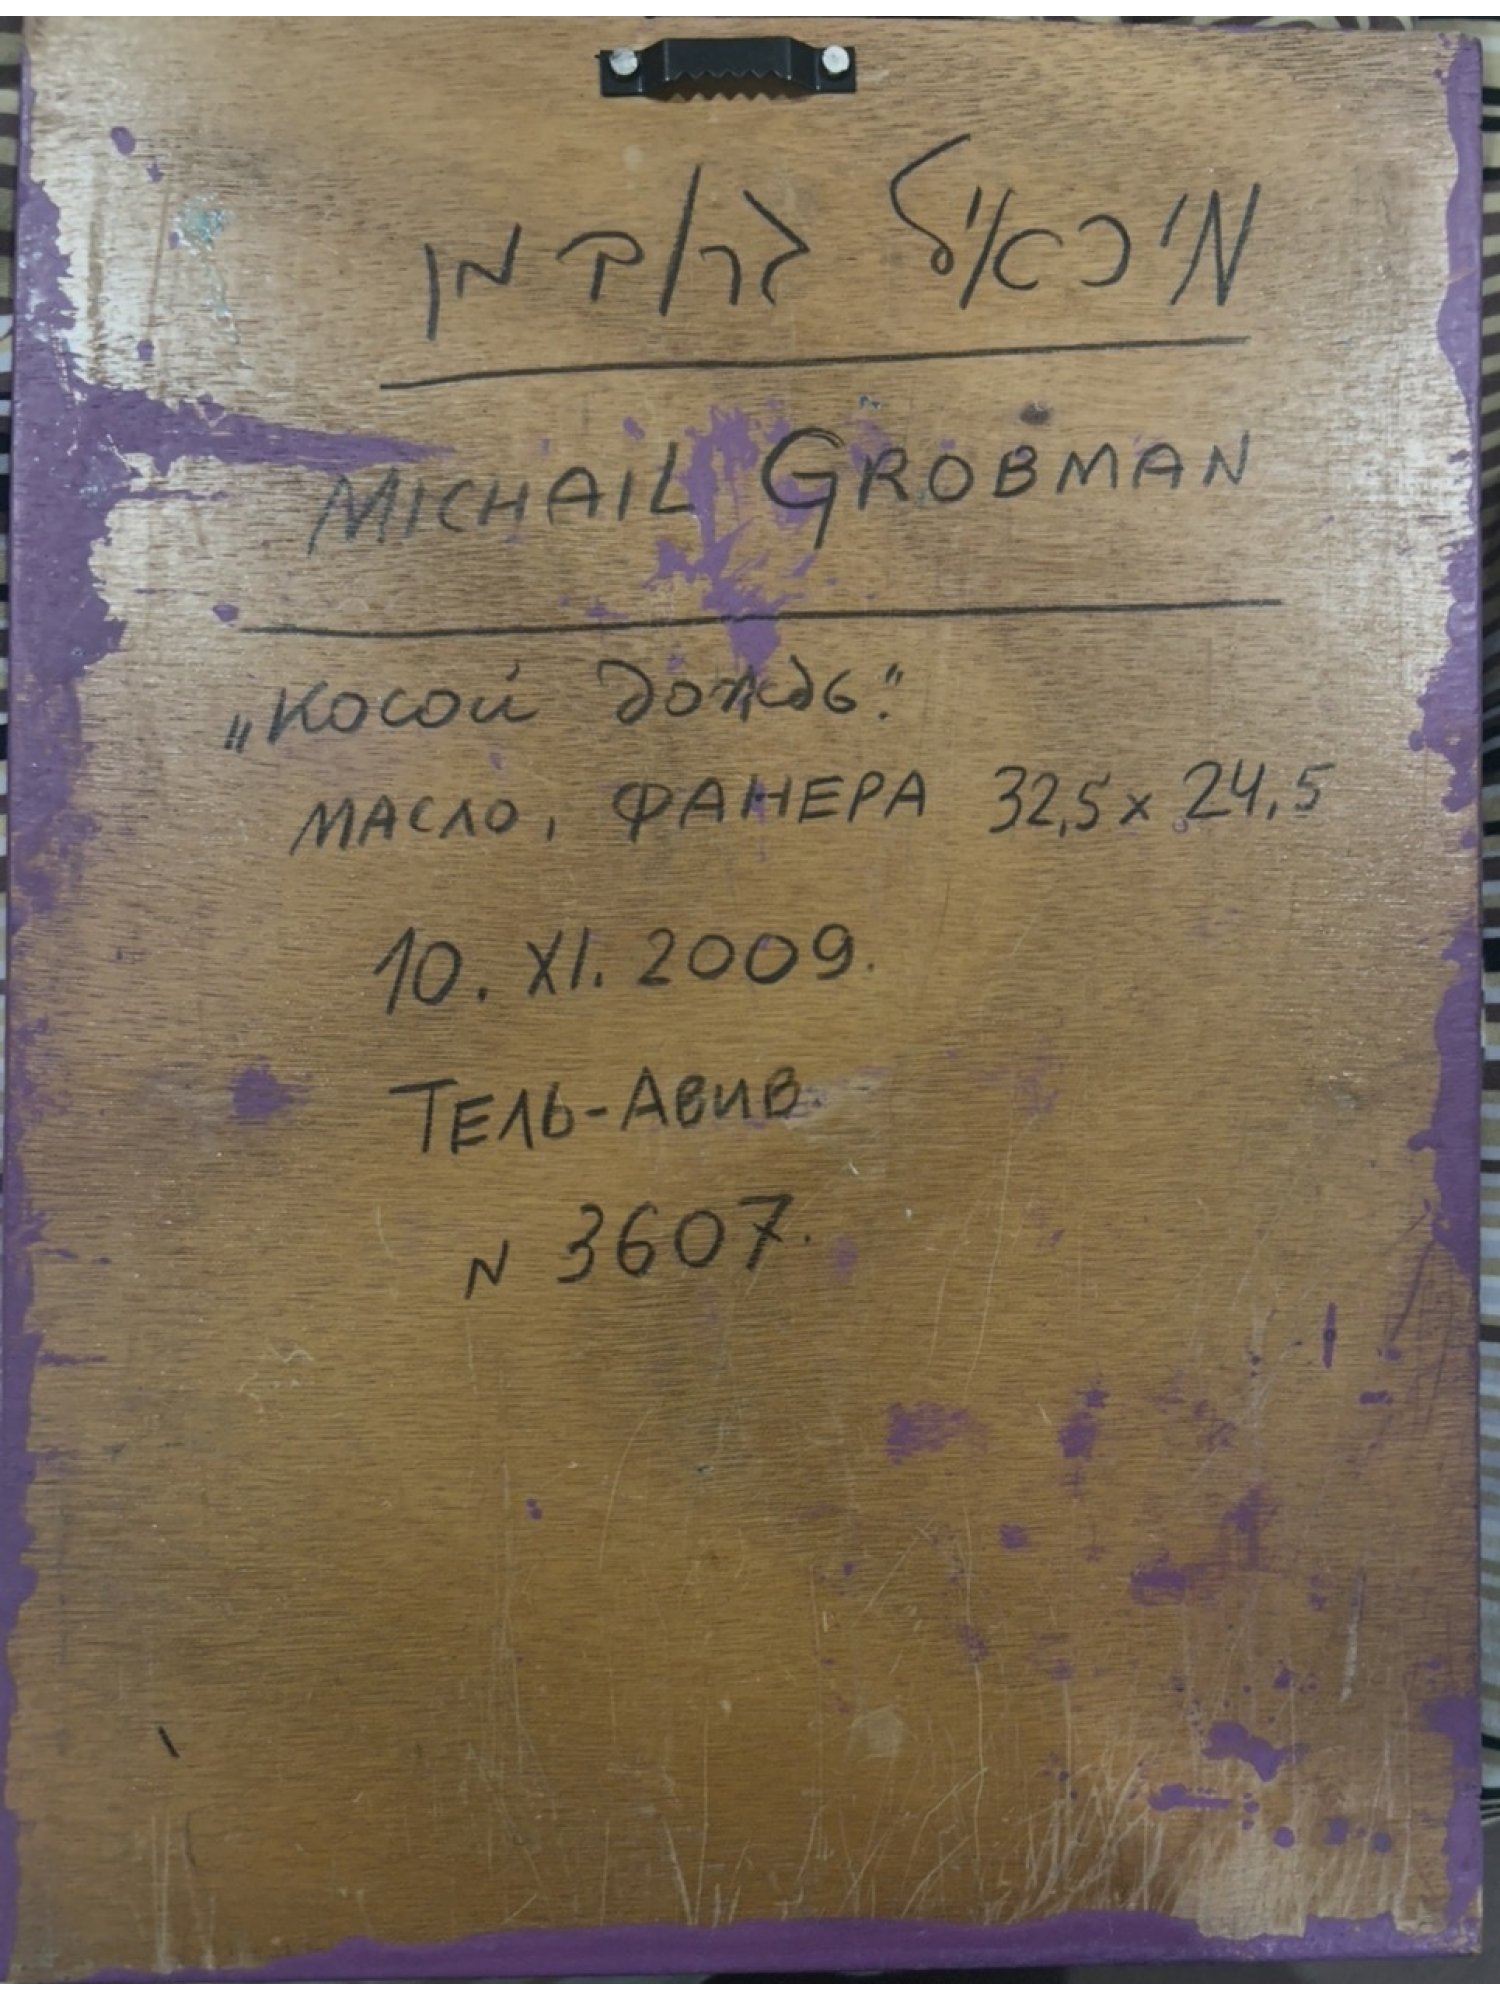 מיכאיל גרובמן
MICHAIL GROBMAN
„Косой дождь."
МАСЛО, ФАНЕРА 32,5 x 24,5
10. XI. 2009.
ТЕЛЬ-АВИВ.
N 3607.